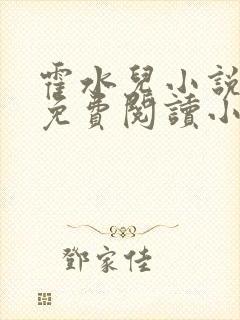 霍水兒小說
免費閱讀小
鄧家佳